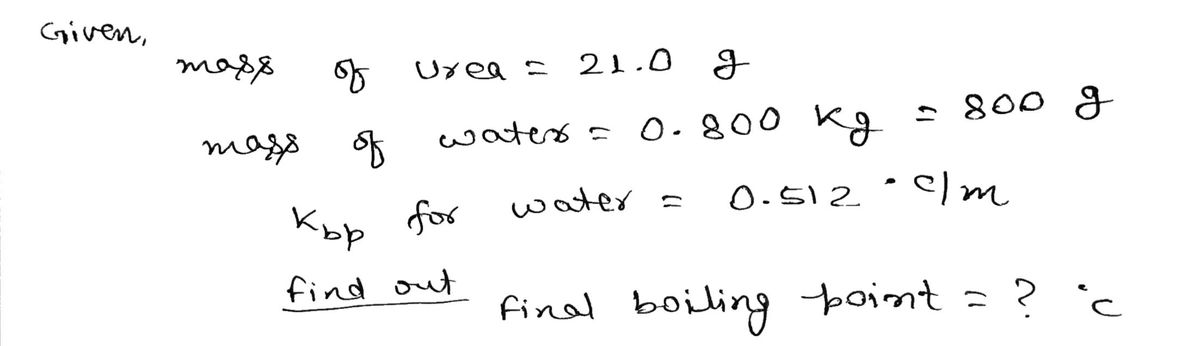 Given,
mass of urea = 21.0 g
mass of water = 0.800 kg = 800 g
Kbp for water = 0.512 °c/m
find out final boiling point = ? °c